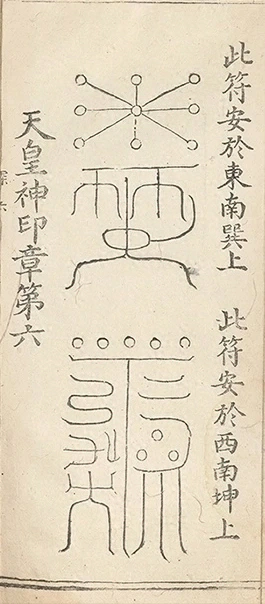 此符安於東南巽上
此符安於西南坤上
天皇神印章第六